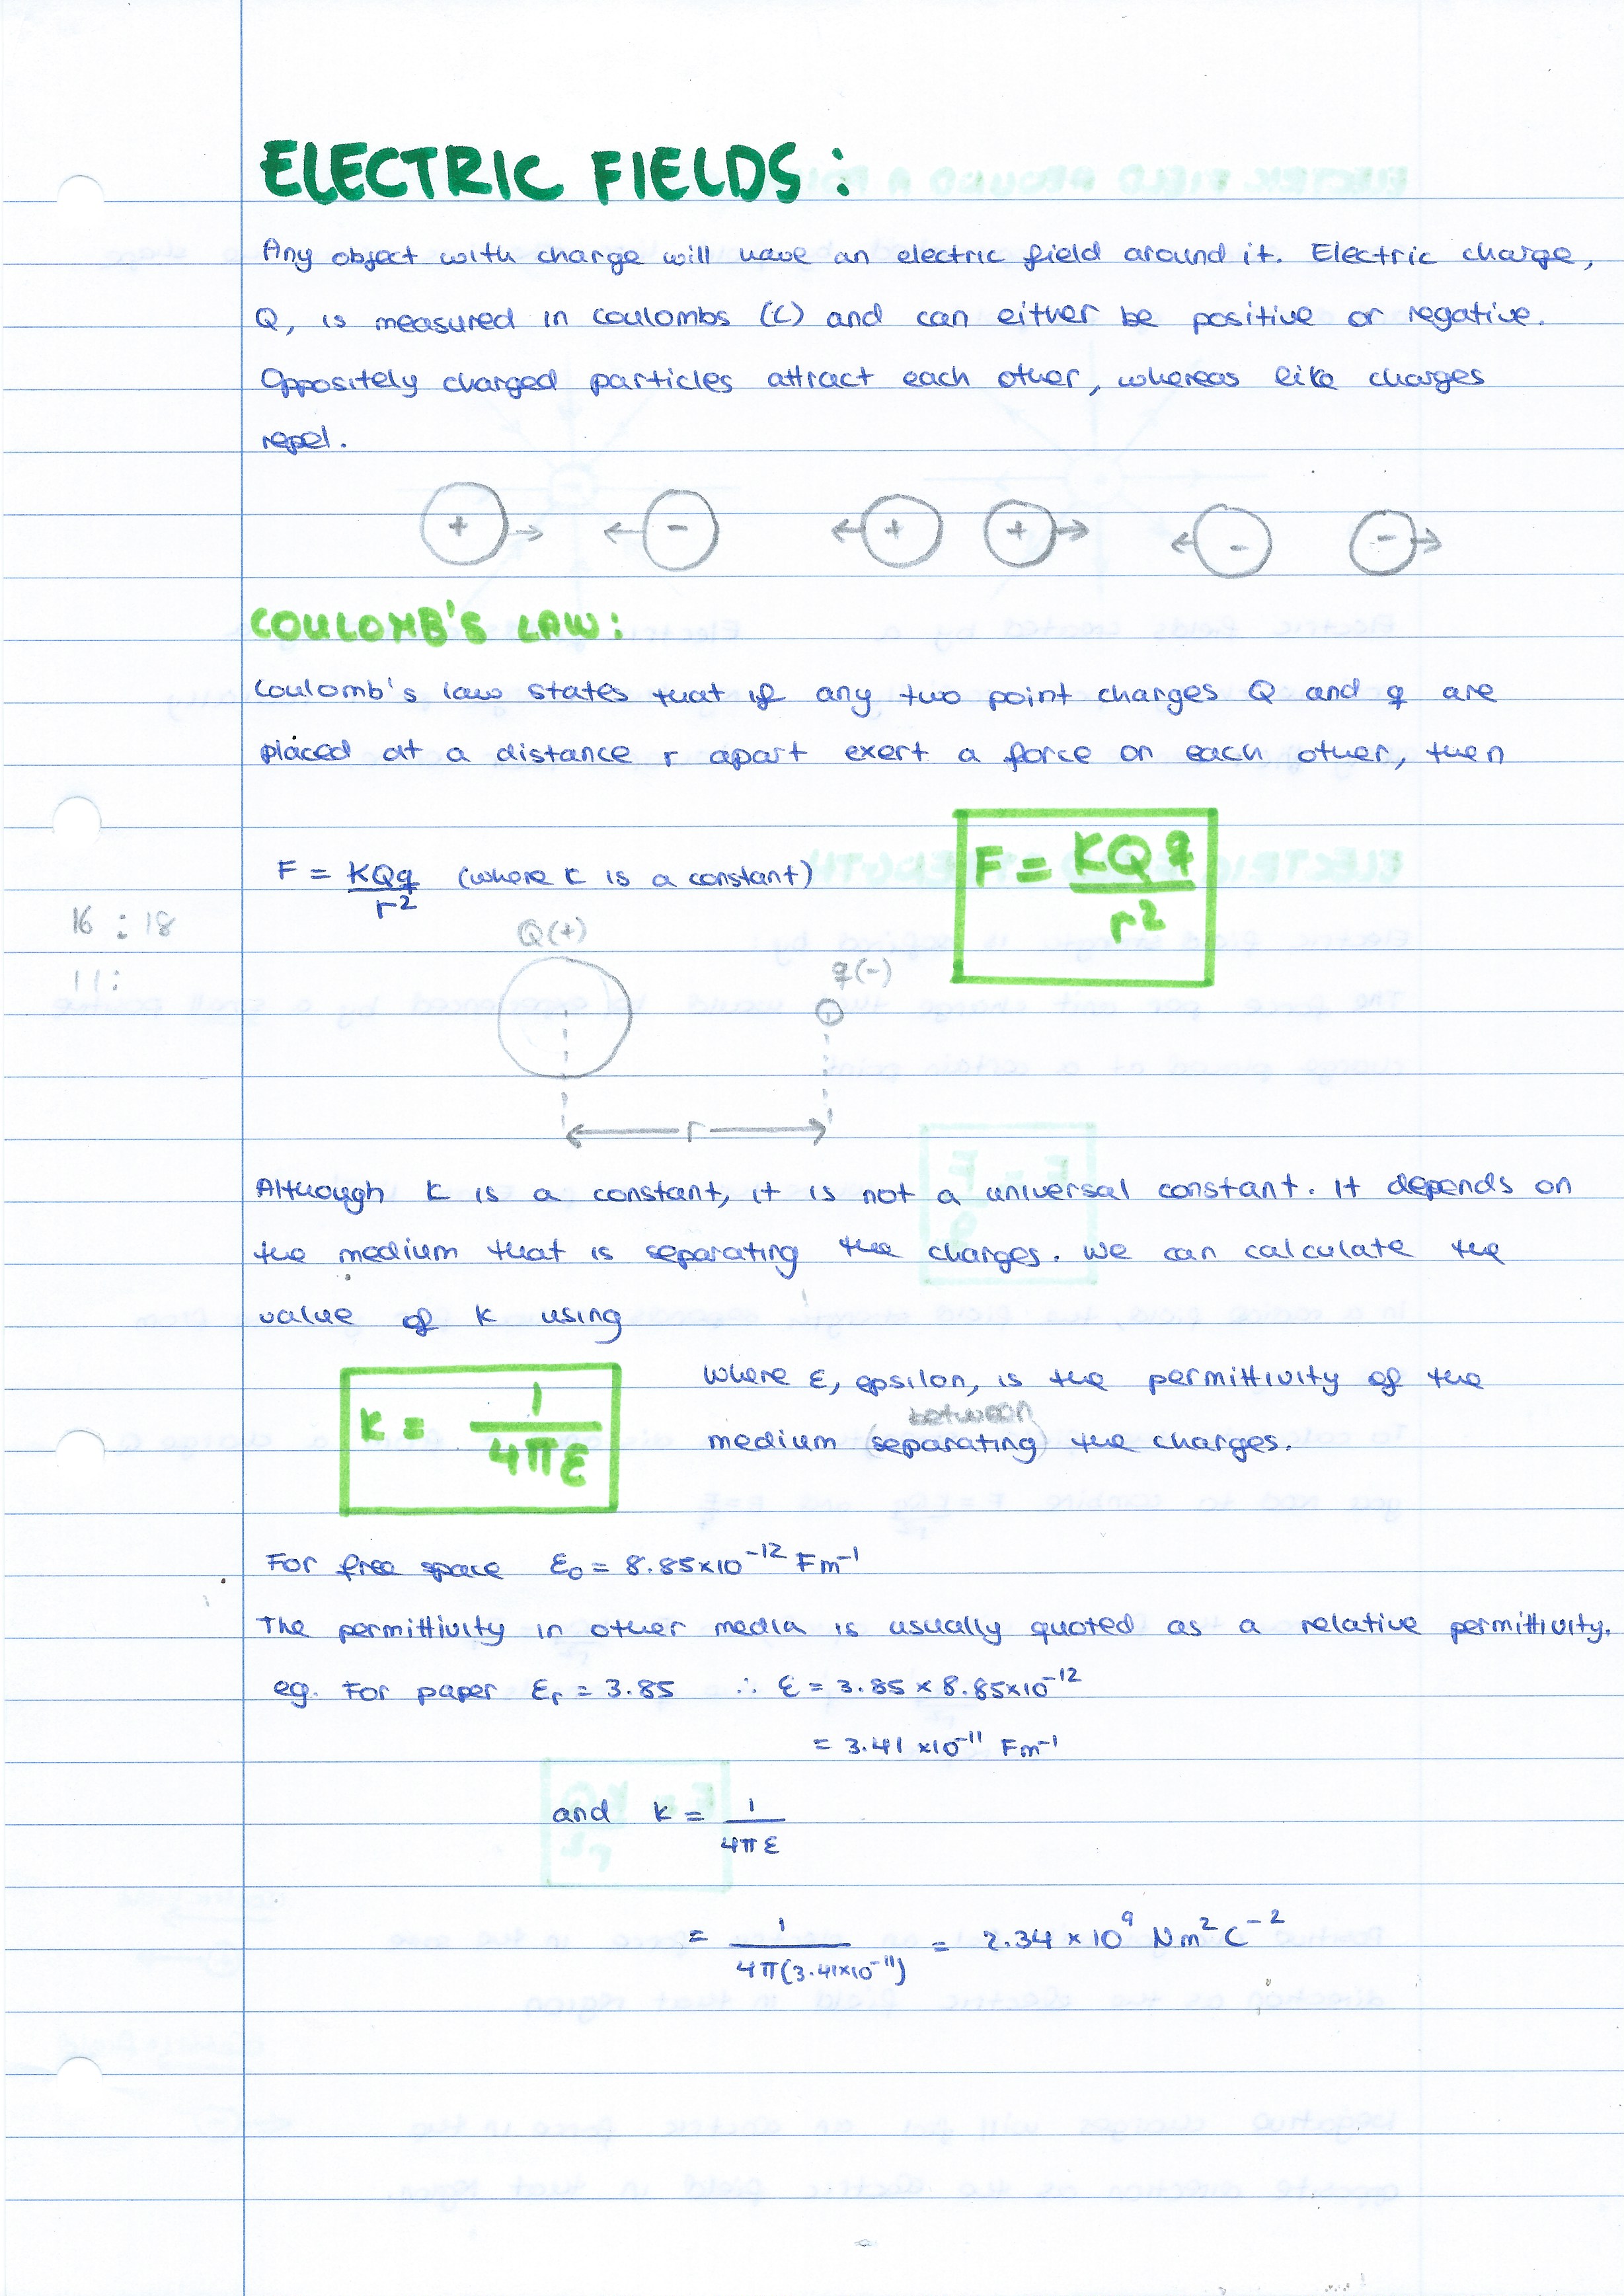 ELECTRIC FIELDS:
Any object with charge will have an electric field around it. Electric charge,
Q, is measured in coulombs (C) and can either be positive or negative.
Oppositely charged particles attract each other, whereas like charges
repel.
+ - + + - -
COULOMB'S LAW:
Coulomb's law states that if any two point charges Q and q are
placed at a distance r apart exert a force on each other, then
F = KQq/r² (where K is a constant)
F = KQq/r²
16 : 18
11:
Q(+)
q(-)
r
Although K is a constant, it is not a universal constant. It depends on
the medium that is separating the charges. We can calculate the
value of K using
K = 1/4πε
where ε, epsilon, is the permittivity of the
between
medium (separating) the charges.
For free space ε₀ = 8.85×10⁻¹² Fm⁻¹
The permittivity in other media is usually quoted as a relative permittivity.
eg. For paper εr = 3.85 ∴ ε = 3.85 × 8.85×10⁻¹²
= 3.41 ×10⁻¹¹ Fm⁻¹
and K = 1/4πε
= 1/4π(3.41×10⁻¹¹) = 2.34 × 10⁹ Nm² C⁻²